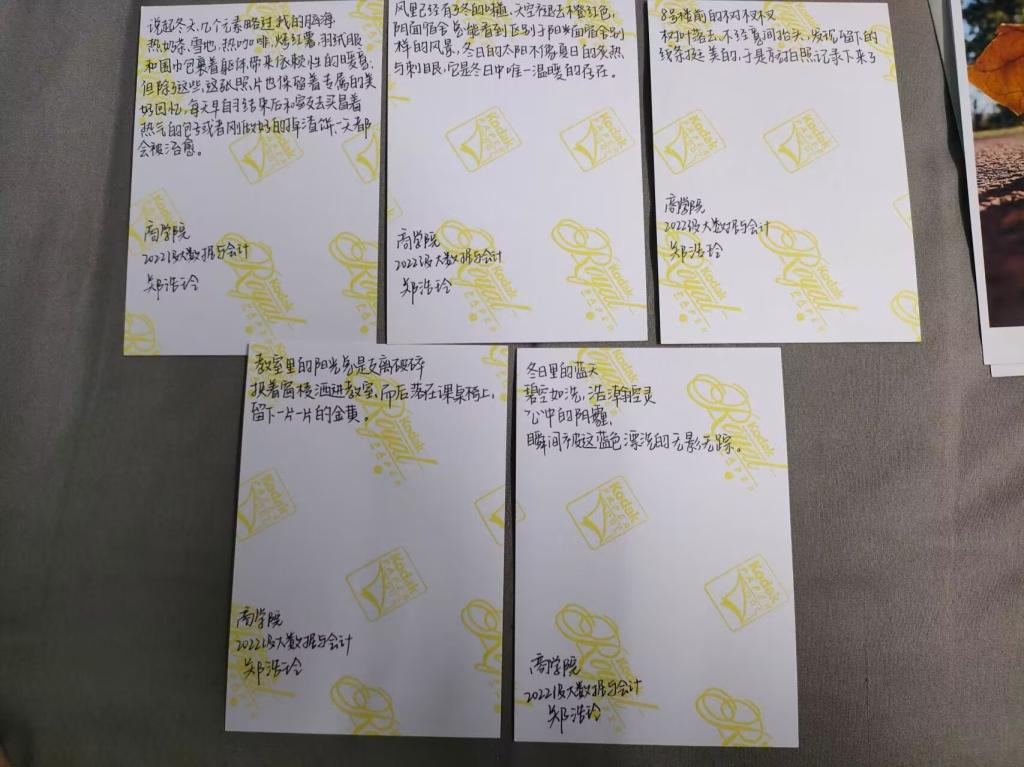 说起冬天，几个元素略过我的脑海
热奶茶、雪地、热咖啡、烤红薯、羽绒服
和围巾包裹着躯体带来依赖性的暖意；
但除了这些，这张照片也保留着专属的美
好回忆，每天早自习结束后和室友去买冒着
热气的包子或者刚做好的掉渣饼、一天都
会被治愈。
商学院
2022级大数据与会计
郑浩玲
风里已经有了冬的味道、天空褪去橙红色，
阴面宿舍总能看到区别于阳光面宿舍别
样的风景，冬日的太阳不像夏日的炙热
与刺眼，它是冬日中唯一温暖的存在。
商学院
2022级大数据与会计
郑浩玲
8号楼前的树杈
树叶落去，不经意间抬头，发现留下的
线条挺美的，于是就拍照记录下来了
商学院
2022级大数据与会计
郑浩玲
教室里的阳光总是支离破碎
扶着窗棱洒进教室、而后落在课桌椅上，
留下一片一片的金黄。
商学院
2022级大数据与会计
郑浩玲
冬日里的蓝天
碧空如洗，浩瀚空灵
心中的阴霾，
瞬间被这蓝色漂洗的无影无踪。
商学院
2022级大数据与会计
郑浩玲
Kodak
Royal
PAPER